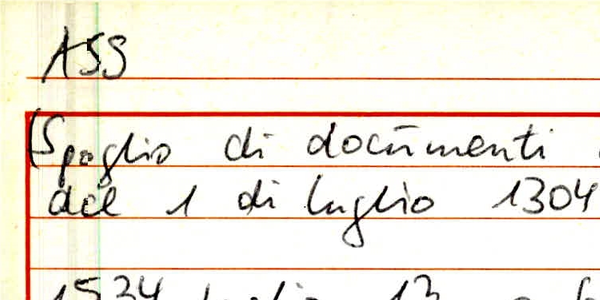 ASS
(Spoglio di documenti
del 1 di luglio 1304
1534 luglio 13